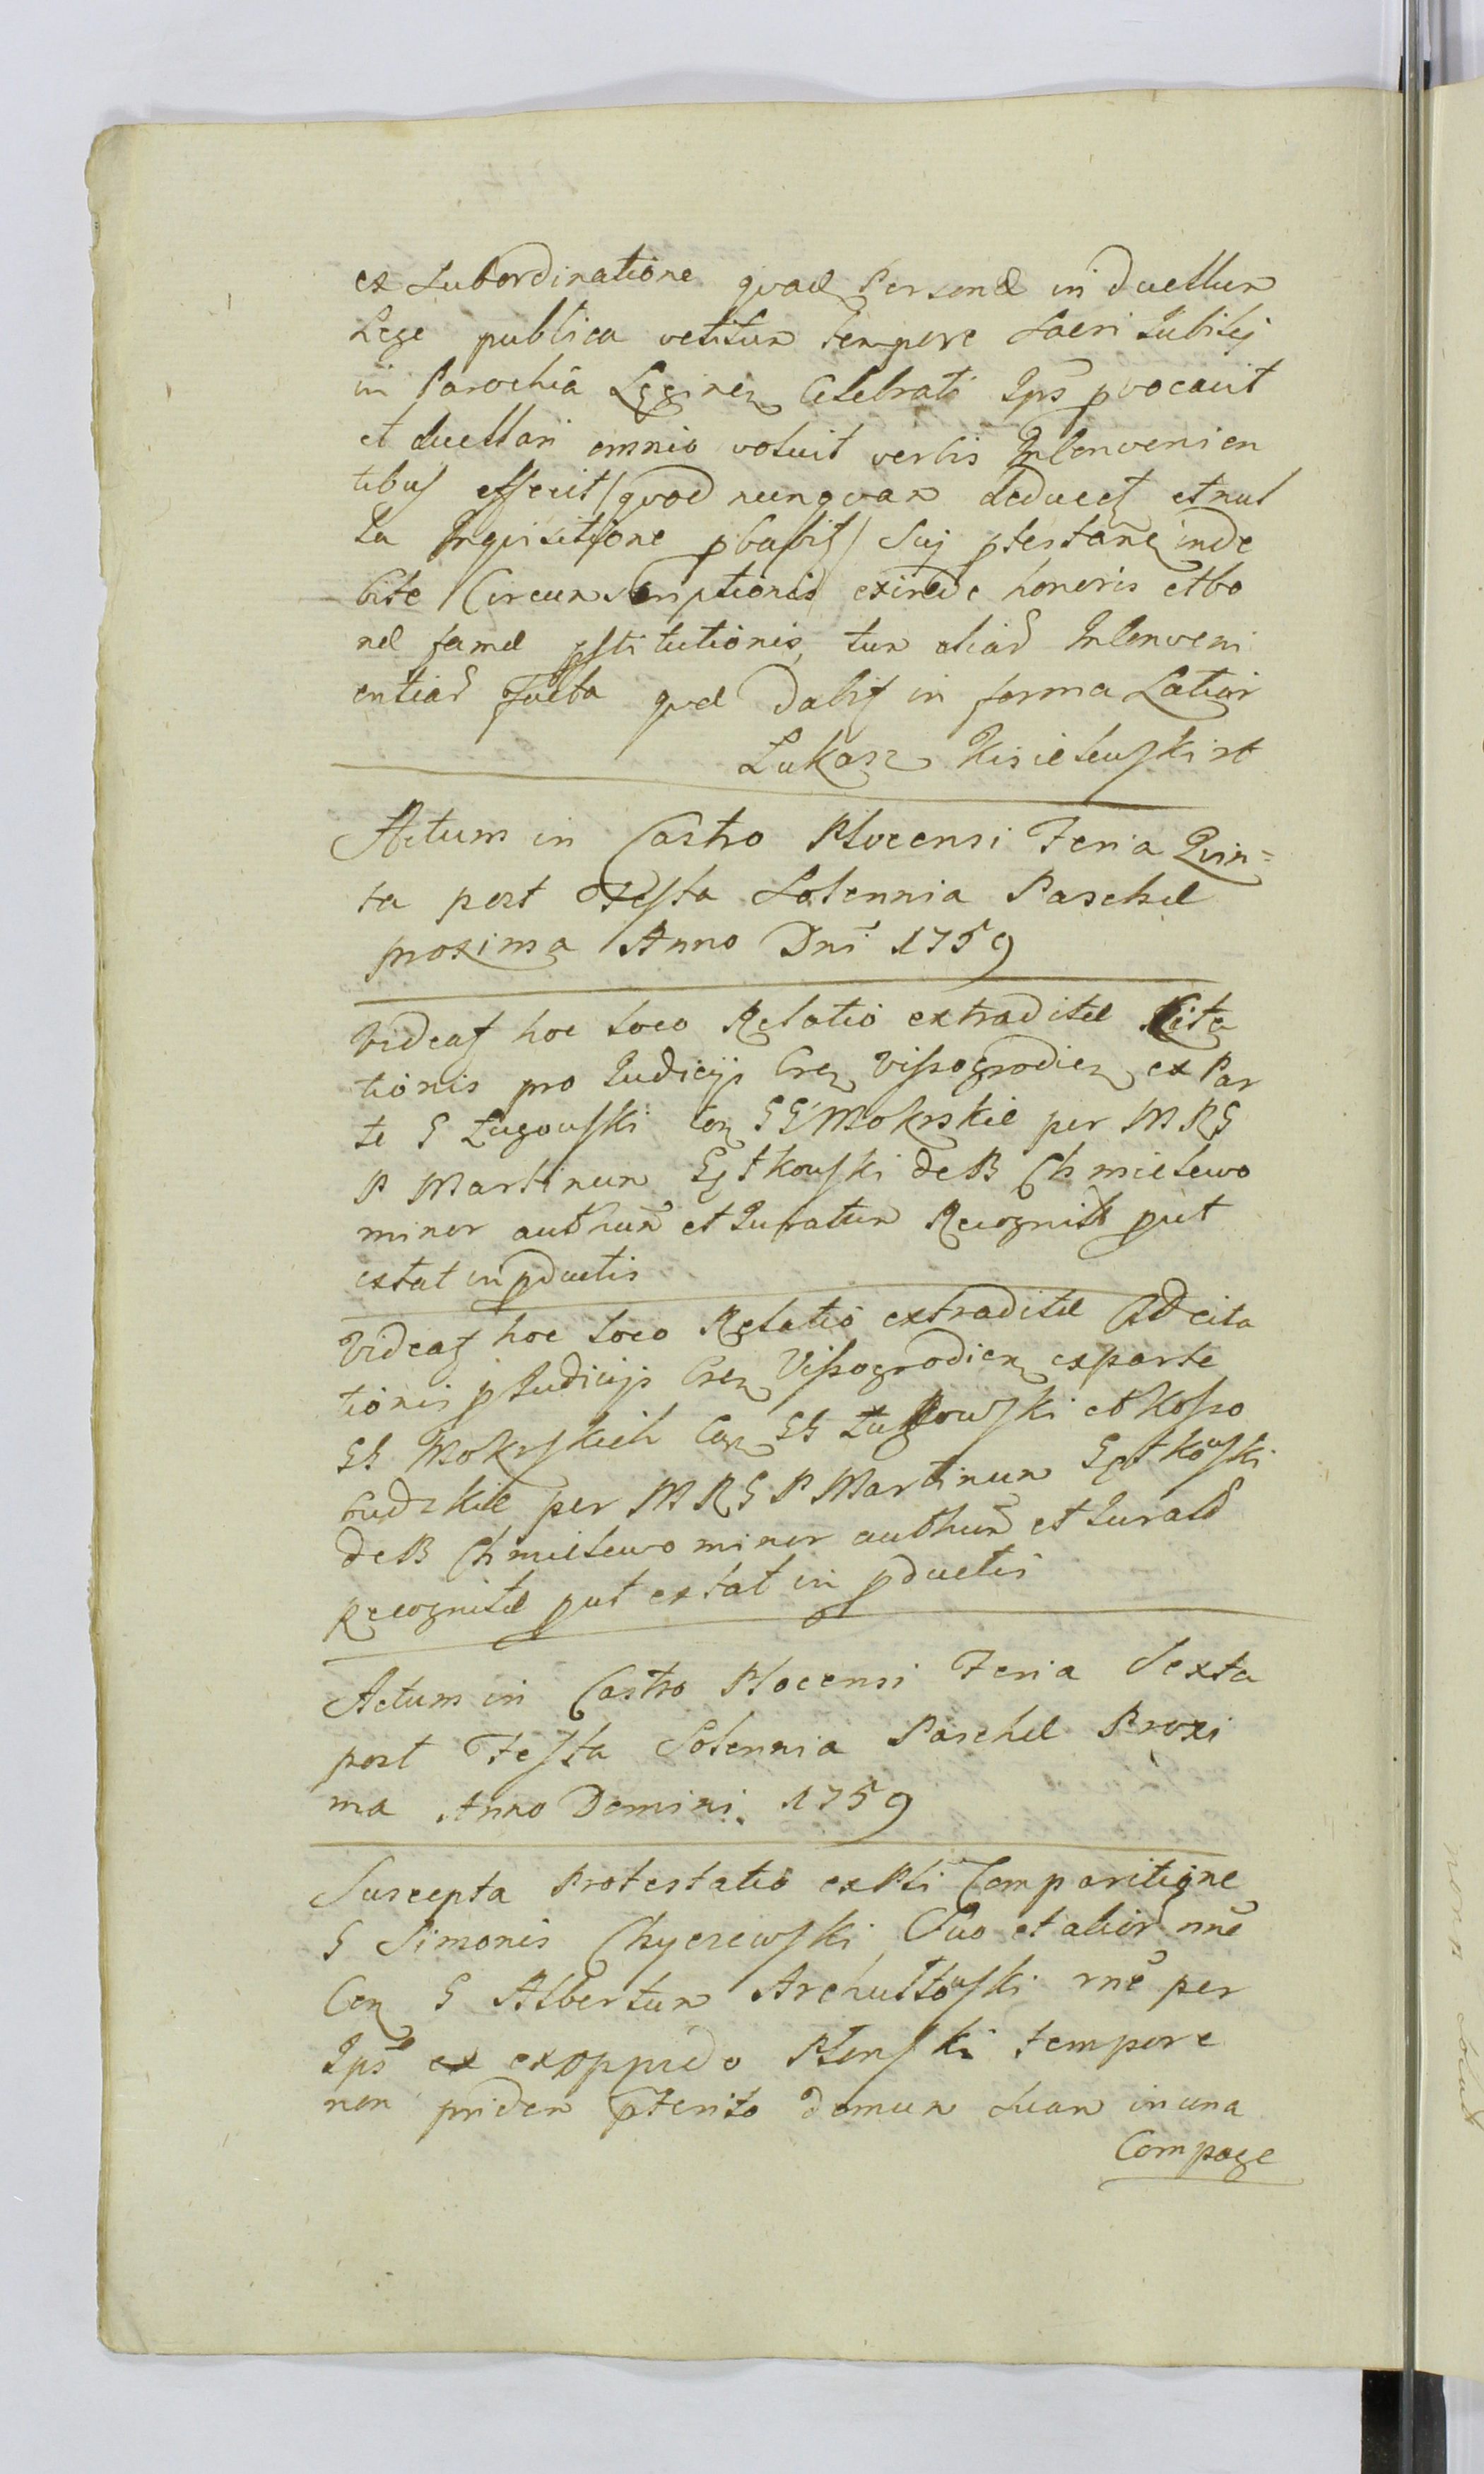 ex Subordinatione quad Personæ in duellum
Lege publica vetitum tempore Sacri Jubilej
in Parochia Celebrati Ips pvocavit
et duellari omnio voluit verbis Intervenien
tibus effecit / quod nunquam deducet et nul
la Inquisitione pbabit / Suj ptestane inde
bite Circumscriptionis exinde honoris et bo
næ famæ pstitutionis, tum aliar Interveni
entiar facta quæ dabit in forma Latiori
Lukasz Kisielewski
Actum in Castro Plocensi Feria Quin=
ta post Festa Solennia Paschæ
proxima Anno Dni 1759
Videat hoc loco Relatio extraditæ Cita
tionis pro Judicijs Cren Vissogrodien ex Par
te G Zugowski Con GG Mokrskie per MRG
P Martinum Gutkowski de B Chmielewo
minor authum et Juratum Recognitæ put
extat in pductis
Videat hoc loco Relatio extraditæ Adcita
tionis p Judicijs Cren Vissogrodien exparte
GG Mokrskich Con GG et Kosso
budzkie per MRG P Martinum Gutkowski
de B Chmielewo minor authum et Jurat
Recognitæ put extat in pductis
Actum in Castro Plocensi Feria Sexta
post Festa Solennia Paschæ Proxi
ma Anno Domini 1759
Suscepta Protestatio ex Psli Comparitione
G Simonis Chyczewski Suo et alior nne
Con G Albertum Archutowski rne per
Ips ex exoppido Plonski tempore
non pridem pterito domum suam in una
Compage